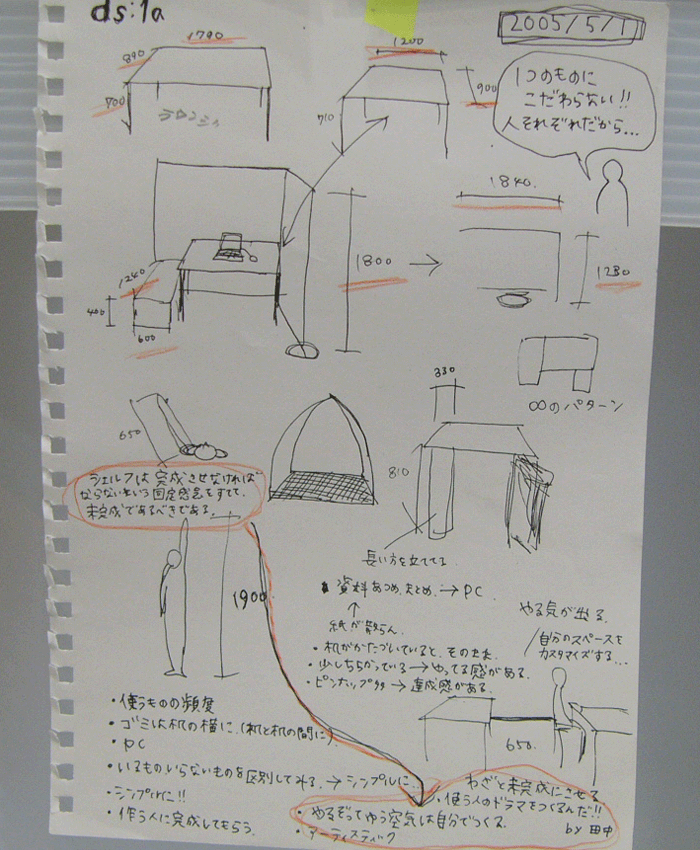 ds:1a
2005/5/1
1790
890
700
1200
900
710
1つのものに
こだわらない!!
人それぞれだから…
1840.
1800
1230
1240
400
600
330
∞のパターン
650
810
シェルフは完成させなければ
ならないという固定感念をすてて、
未完成であるべきである。
長い方を立ててる
1900
資料あつめ、まとめ、→PC
紙が散らん
・机がかたづいていると、そのまま、
・少しちらかっている→やってる感がある。
・ピンナップ
→達成感がある。
やる気が出る。
自分のスペースを
カスタマイズする…
650.
・使うものの頻度
・ゴミは机の横に、(机と机の間に)
・PC
・いるもの、いらないものを区別してみる。→シンプルに…
・シンプルに!!
・作る人に完成してもらう。
わざと未完成にさせる
、使う人のドラマをつくるんだ!!
by 田中
・やるぞってゆう空気は自分でつくる。
・アーティスティック